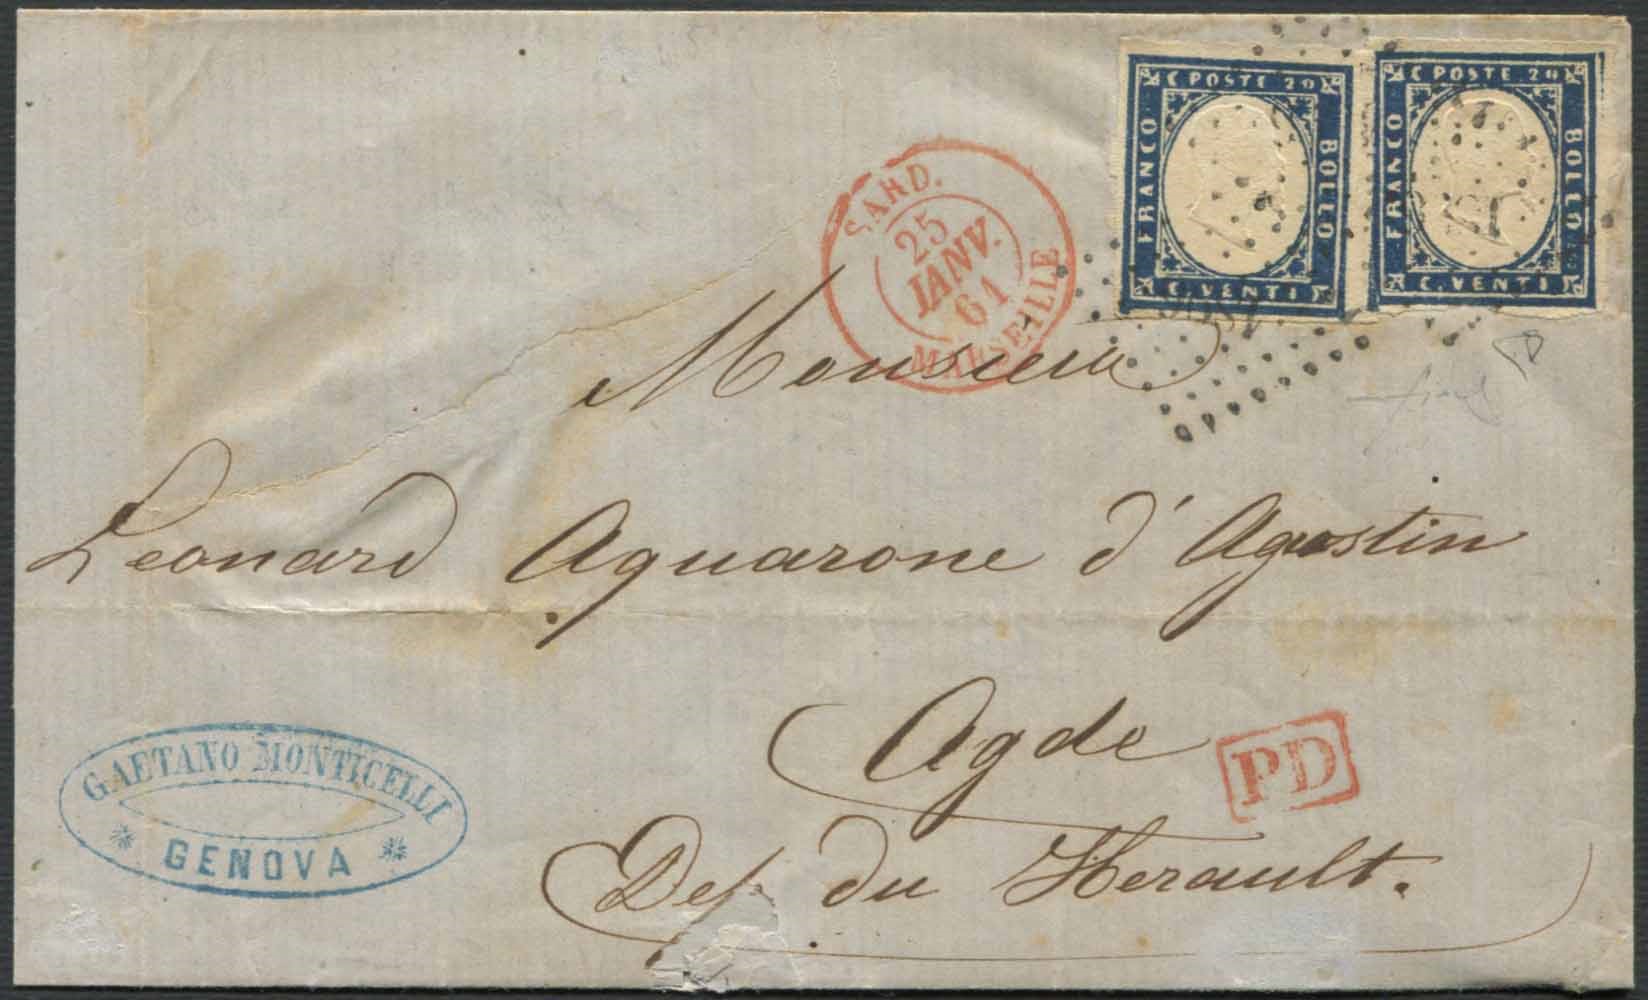 C POSTE 20
FRANCO
BOLLO
C. VENTI
C POSTE 20
FRANCO
BOLLO
C. VENTI
SARD.
25
JANV.
61
MARSEILLE
Monsieur
Leonard Aquarone d'Agostin
Agde
PD
Dep. du Herault.
GAETANO MONTICELLI
GENOVA